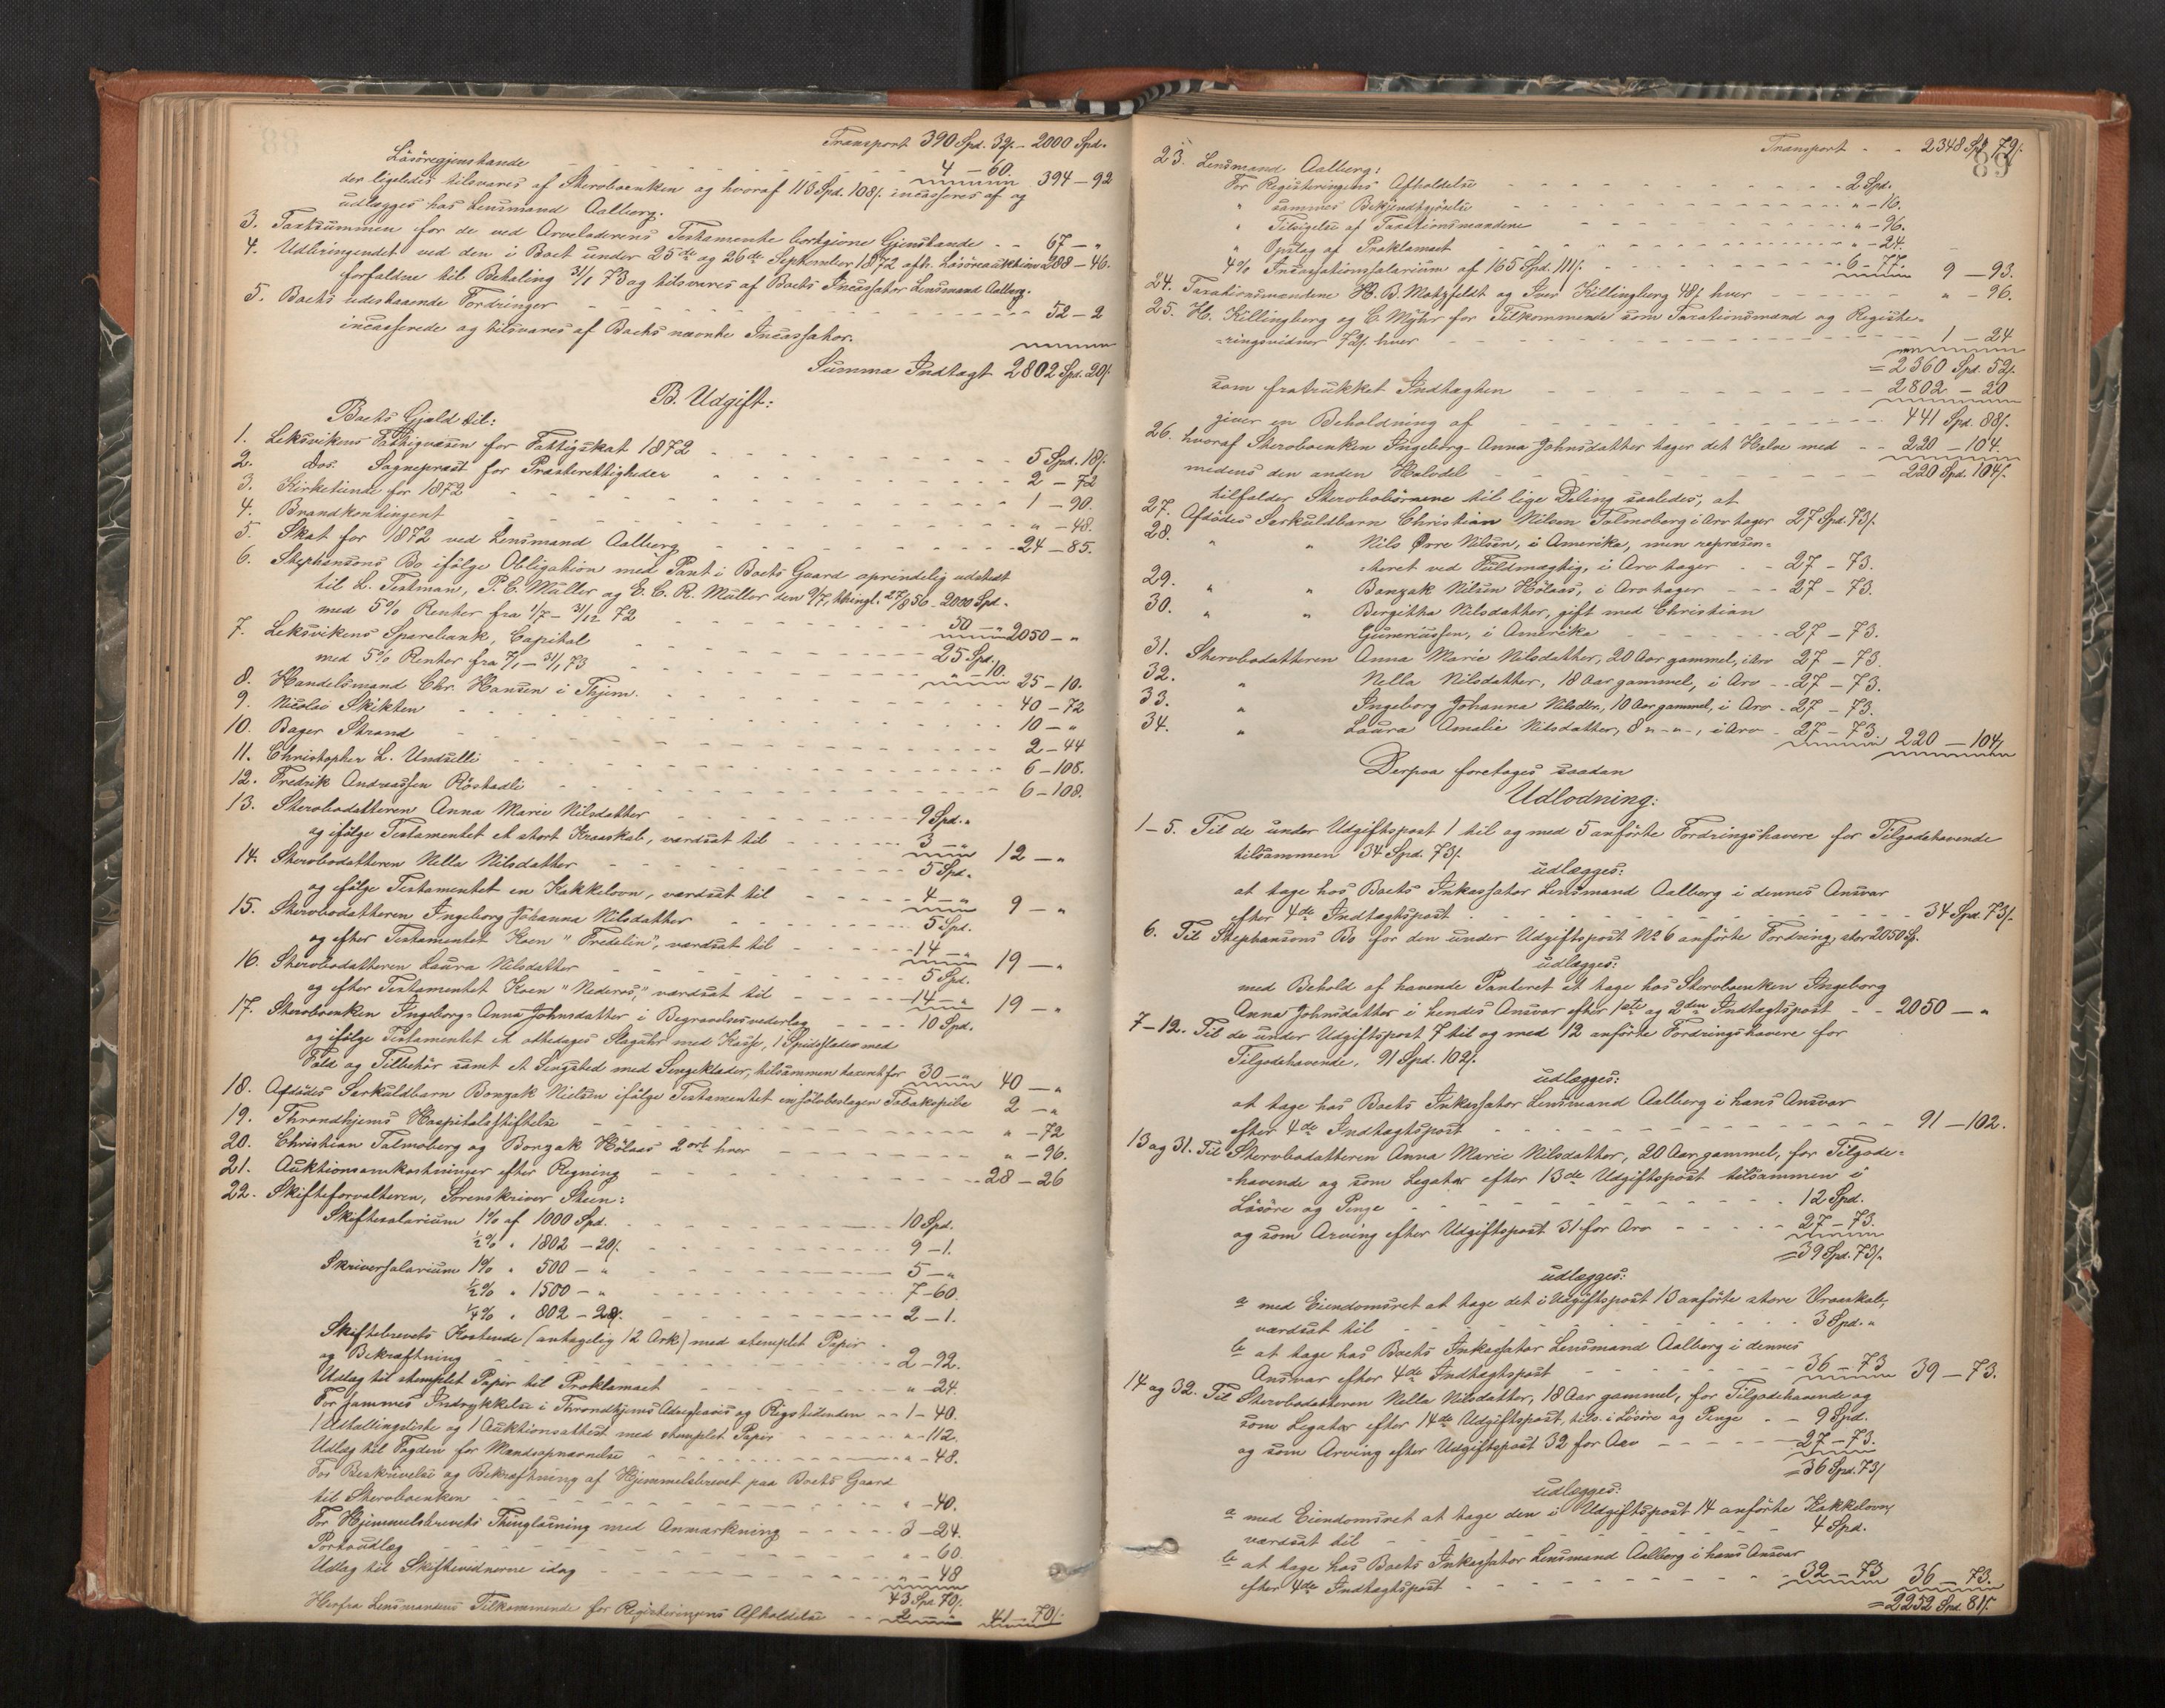 Transport 390 Spd. 32/. - 2000 Spd.
Løsøregjenstande - - - 4 - 60.
394 - 92
der ligeledes tilsvares af Stervboenken og hvoraf 118 Spd. 108/. incasseres af og
udlægges hos Lensmand Aalberg.
3. Taxtsummen for de ved Arveladerens Testamente bortgivne Gjenstande - - 67 - "
4. Udbringendet ved den i Boet under 25de og 26de September 1872 afh. Løsøreauktion 288 - 46.
forfalden til Betaling 31/1 73 og tilsvares af Boets Incassator Lensmand Aalberg.
5. Boets udestaaende Fordringer - - - 52 - 2
incasserede og tilsvares af Boets nævnte Incassator.
Summa Indtægt 2802 Spd. 20/.
B. Udgift:
Boets Gjæld til:
1. Leksvikens Fattigvæsen for Fattigskat 1872 - - - 5 Spd. 18/.
2. dos. Sogneprest for Præsterettigheder - - - 2 - 72
3. Kirketiende for 1872 - - - 1 - 90.
4. Brandkontingent - - - " - 48.
5. Skat for 1872 ved Lensmand Aalberg - - - 24 - 85.
6. Stephansons Bo ifølge Obligation med Pant i Boets Gaard oprindelig udstedt
til L. Testman, P. C. Müller og E. C. R. Müller den 9/7, thingl. 27/8 56 - 2000 Spd.
med 5% Renter fra 1/7 - 31/12 72 - - - 50 - " 2050 - "
7. Leksvikens Sparebank, Capital - - - 25 Spd.
med 5% Renter fra 7/1 - 31/1 73 - - - " - 10. 25 - 10.
8. Handelsmand Chr. Hansen i Thjem. - - - 40 - 72
9. Nicolai Skikten - - - 10 - "
10. Bager Strand - - - 2 - 44
11. Christopher L. Undselli - - - 6 - 108.
12. Fredrik Andreassen Röstadli - - - 6 - 108.
13. Stervbodatteren Anna Marie Nilsdatter - - - 9 Spd. "
og ifølge Testamentet et stort Kraaskab, værdsat til - - - 3 - " 12 - "
14. Stervbodatteren Nella Nilsdatter - - - 5 Spd.
og ifølge Testamentet en Kakkelovn, værdsat til - - - 4 - " 9 - "
15. Stervbodatteren Ingeborg Johanna Nilsdatter - - - 5 Spd.
og efter Testamentet Koen "Fredelin", værdsat til - - - 14 - " 19 - "
16. Stervbodatteren Laura Nilsdatter - - - 5 Spd.
og efter Testamentet Koen "Nederos", værdsat til - - - 14 - " 19 - "
17. Stervboenken Ingeborg-Anna Johnsdatter i Begravelsesvederlag - - - 10 Spd.
og ifølge Testamentet et ottedages Slaguhr med Kasse, 1 Spidsslæde med
Fæld og Tilbehør samt et Sengsted med Sengeklæder, tilsammen taxeret for 30 - " 40 - "
18. Afdødes Særkuldbarn Bongak Nielsen ifølge Testamentet en sølvbeslagen Tobakspibe 2 - "
19. Throndhjems Hospitalsstiftelse - - - " - 72
20. Christian Tolmoberg og Bongak Hölaas 2 ort hver - - - " - 96.
21. Auktionsomkostninger efter Regning - - - 28 - 26
22. Skifteforvalteren, Sorenskriver Steen:
Skiftesalarium 1% af 1000 Spd. - - - 10 Spd.
1/2% " 1802 - 20/. - - - 9 - 1.
Skriversalarium 1% " 500 - " - - - 5 - "
1/2% " 1500 - " - - - 7 - 60.
1/4% " 802 - 20/. - - - 2 - 1.
Skiftebrevets Kostende (antagelig 12 Ark) med stemplet Papir
og Bekræftning - - - 2 - 92.
Udlæg til stemplet Papir til Proklamaet - - - " - 24.
For sammes Indrykkelse i Throndhjems Adresseavis og Rigstidenden - - 1 - 40.
1 Udtallingsliste og 1 Auktionsattest med stemplet Papir - - - " - 112.
Udlæg til Fogden for Mændsopnævnelse - - - " - 48.
For Beskrivelse og Bekræftning af Hjemmelsbrevet paa Boets Gaard
til Stervboenken - - - " - 40.
For Hjemmelsbrevets Thinglæsning med Anmærkning - - - 3 - 24.
Portoudlæg - - - " - 60
Udlæg til Skiftevidnerne idag - - - " - 48
43 Spd. 70/.
Herfra Lensmandens Tilkommende for Registreringens Afholdelse - - 2 - " 41 - 70/.
89
Transport - - 2348 Spd. 79/.
23. Lensmand Aalberg:
For Registreringens Afholdelse - - - 2 Spd.
" sammes Bekjendtgjørelse - - - " - 16.
" Tilsigelse af Taxationsmændene - - - " - 96.
" Opslag af Proklamaet - - - " - 24.
4% Incassationssalarium af 165 Spd. 111/. - - - 6 - 77. 9 - 93.
24. Taxationsmændene H. B. Matzfeldt og Iver Killingberg 48/. hver - - - " - 96.
25. H. Killingberg og C. Myhr for Tilkommende som Taxationsmænd og Registe=
=ringsvidner 72/. hver - - - 1 - 24
= 2360 Spd. 52/.
som fratrukket Indtægten - - - 2802 - 20
giver en Beholdning af - - - 441 Spd. 88/.
26. hvoraf Stervboenken Ingeborg-Anna Johnsdatter tager det Halve med - - 220 - 104.
medens den anden Halvdel - - - 220 Spd. 104/.
tilfalder Stervbobørnene til lige Deling saaledes, at
27. Afdødes Særkuldbarn Christian Nilsen Tolmoberg i Arv tager 27 Spd. 73/.
28. " " Nils Ørre Nilsen, i Amerika, men repræsen=
=teret ved Fuldmægtig, i Arv tager - - 27 - 73.
29. " " Bangak Nilsen Hölaas, i Arv tager - - - 27 - 73.
30. " " Bergitha Nilsdatter, gift med Christian
Gunneriussen, i Amerika - - - 27 - 73.
31. Stervbodatteren Anna Marie Nilsdatter, 20 Aar gammel, i Arv 27 - 73.
32. " Nella Nilsdatter, 18 Aar gammel, i Arv - - 27 - 73.
33. " Ingeborg Johanna Nilsdtr., 10 Aar gammel, i Arv - 27 - 73.
34. " Laura Amalie Nilsdatter, 8 " - " -, i Arv - 27 - 73. 220 - 104/.
Derpaa foretages saadan
Udlodning:
1-5. Til de under Udgiftspost 1 til og med 5 anførte Fordringshavere for Tilgodehavende
tilsammen 34 Spd. 73/.
udlægges:
at tage hos Boets Inkassator Lensmand Aalberg i dennes Ansvar
efter 4de Indtægtspost - - - 34 Spd. 73/.
6. Til Stephansons Bo for den under Udgiftspost No 6 anførte Fordring, stor 2050 Sp.
udlægges:
med Behold af havende Panteret at tage hos Stervboenken Ingeborg
Anna Johnsdatter i hendes Ansvar efter 1ste og 2den Indtægtspost - - 2050 - "
7-12. Til de under Udgiftspost 7 til og med 12 anførte Fordringshavere for
Tilgodehavende, 91 Spd. 102/.
udlægges:
at tage hos Boets Inkassator Lensmand Aalberg i hans Ansvar
efter 4de Indtægtspost - - - 91 - 102.
13 og 31. Til Stervbodatteren Anna Marie Nilsdatter, 20 Aar gammel, for Tilgode=
=havende og som Legatar efter 13de Udgiftspost tilsammen i
Løsøre og Penge - - - 12 Spd.
og som Arving efter Udgiftspost 31 for Arv - - - 27 - 73.
= 39 Spd. 73/.
udlægges:
a med Eiendomsret at tage det i Udgiftspost 13 anførte store Kraaskab,
værdsat til - - - 3 Spd. "
b at tage hos Boets Inkassator Lensmand Aalberg i dennes
Ansvar efter 4de Indtægtspost - - - 36 - 73 39 - 73.
14 og 32. Til Stervbodatteren Nella Nilsdatter, 18 Aar gammel, for Tilgodehavende og
som Legatar efter 14de Udgiftspost, tils. i Løsøre og Penge - - 9 Spd.
og som Arving efter Udgiftspost 32 for Arv - - - 27 - 73.
= 36 Spd. 73/
udlægges:
a med Eiendomsret at tage den i Udgiftspost 14 anførte Kakkelovn,
værdsat til - - - 4 Spd.
b at tage hos Boets Inkassator Lensmand Aalberg i hans Ansvar
efter 4de Indtægtspost - - - 32 - 73 36 - 73.
= 2252 Spd. 81/.